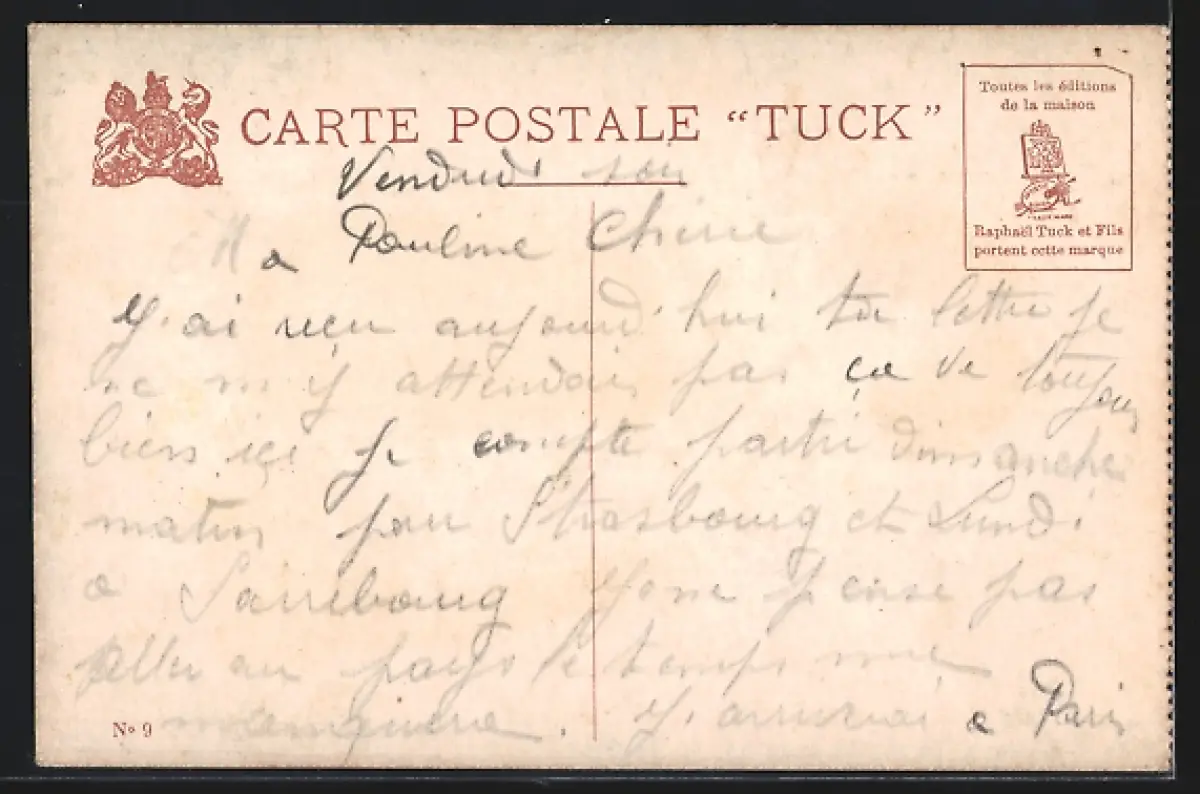 CARTE POSTALE "TUCK"
Toutes les éditions
de la maison
Raphaël Tuck et Fils
portent cette marque
Vendredi soir
Ma Pauline Cherie
J'ai reçu aujourd'hui ta lettre je
ne m'y attendais pas ça va toujours
bien içi je compte partir dimanche
matin pour Strasbourg et Lundi
a Sarrebourg je pense pas
aller au pays le temps me
manquera. J'arriverai a Paris
No 9